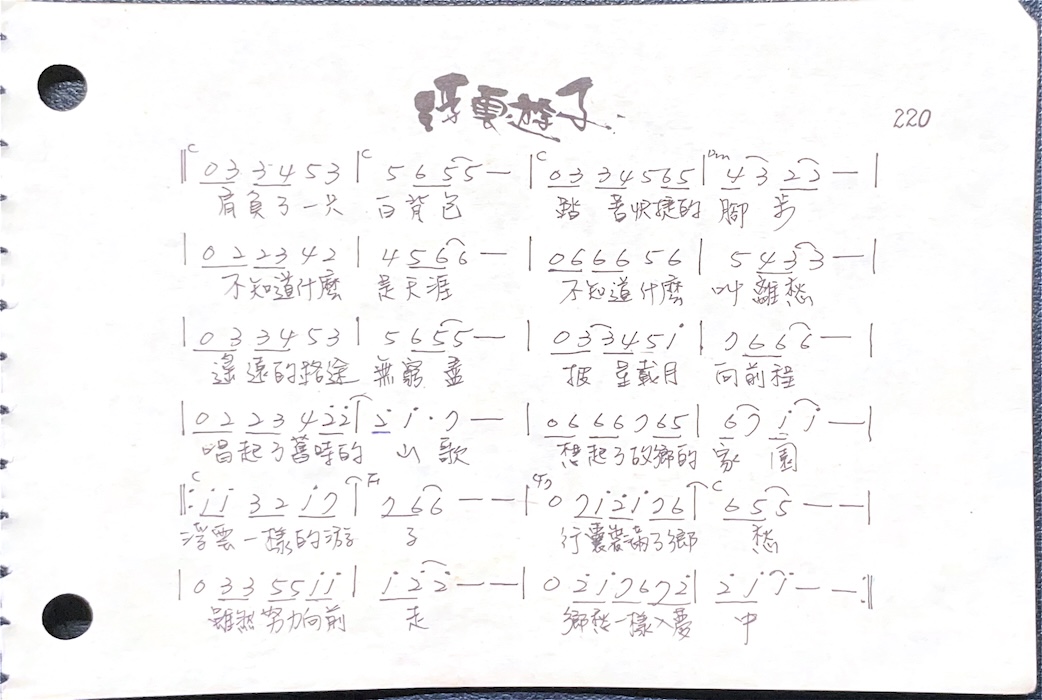 浮雲遊子
220
C C C Dm
‖ 0 3 3 4 5 3 | 5 6 5 5 — | 0 3 3 4 5 6 5 | 4 3 2 2 — |
肩負了一只 白背包 踏著快捷的 腳步
| 0 2 2 3 4 2 | 4 5 6 6 — | 0 6 6 6 5 6 | 5 4 3 3 — |
不知道什麼 是天涯 不知道什麼 叫離愁
| 0 3 3 4 5 3 | 5 6 5 5 — | 0 3 3 4 5 i | 7 6 6 6 — |
遙遠的路途 無窮盡 披星載月 向前程
| 0 2 2 3 4 2̇ 2̇ | 2̇ i · 7 — | 0 6 6 6 7 6 5 | 6 7 i i — |
唱起了舊時的 山歌 想起了故鄉的 家園
C F G7 C
‖: i i 3 2 i 7 | 7 6 6 — — | 0 7 i 2̇ i 7 6 | 6 5 5 — — |
浮雲一樣的游 子 行囊裝滿了鄉 愁
| 0 3 3 5 5 i i | i 2̇ 2̇ — — | 0 2̇ i 7 6 7 2̇ | 2̇ i i — — :‖
雖然努力向前 走 鄉愁一樣入夢 中